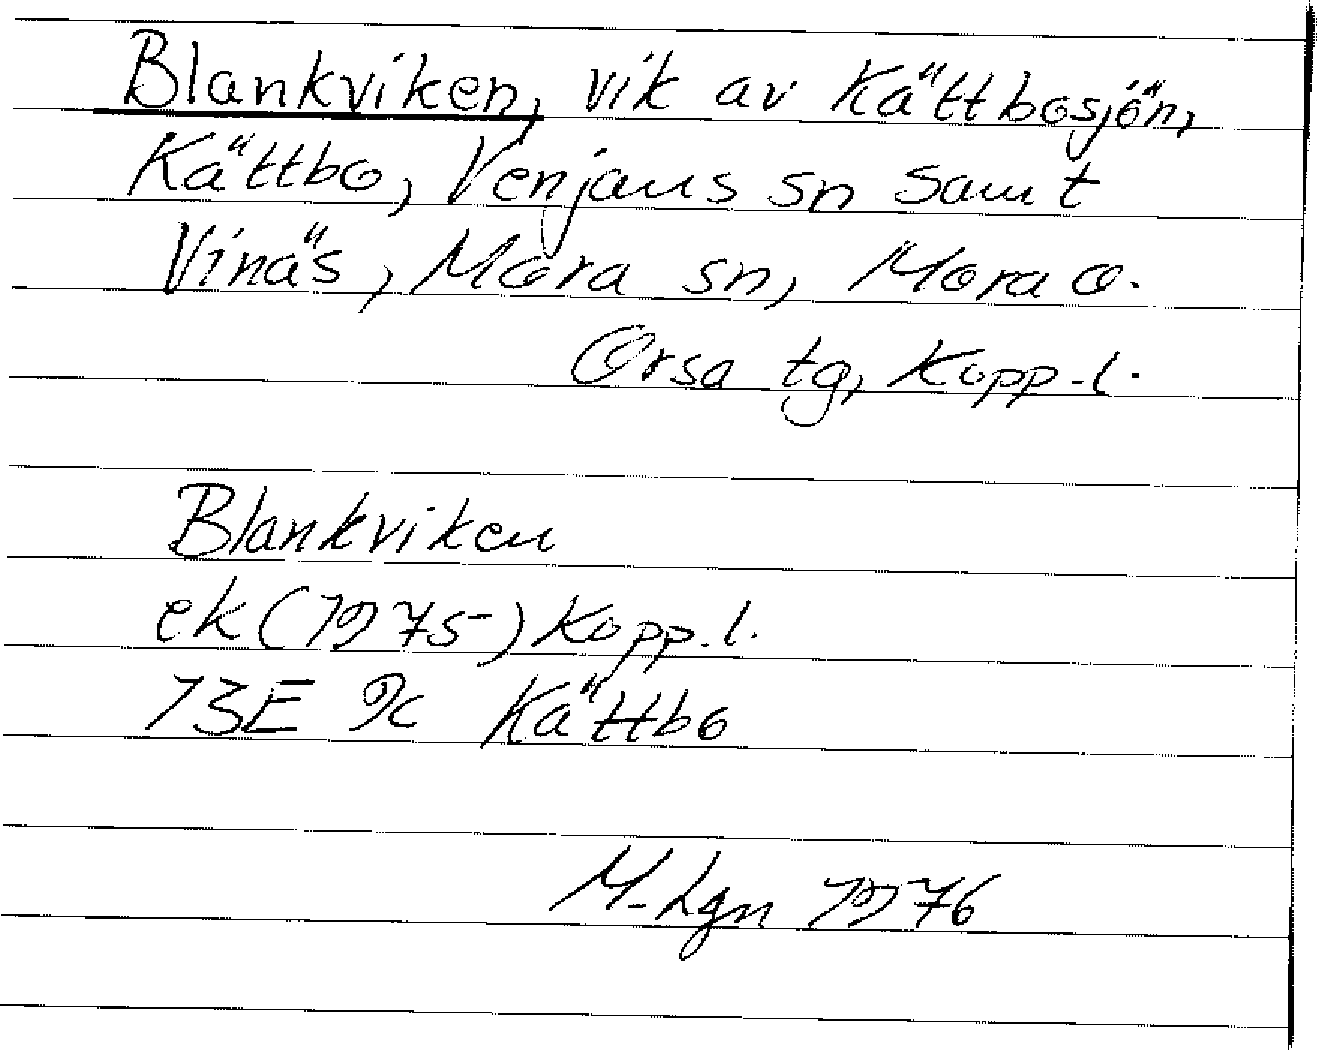 Blankviken, vik av Kättbosjön,
Kättbo, Venjans sn samt
Vinäs, Mora sn, Mora o.
Orsa tg, Kopp. l.
Blankviken
ek (1975) Kopp. l.
13E 9c Kättbo
M. Lgn 1976